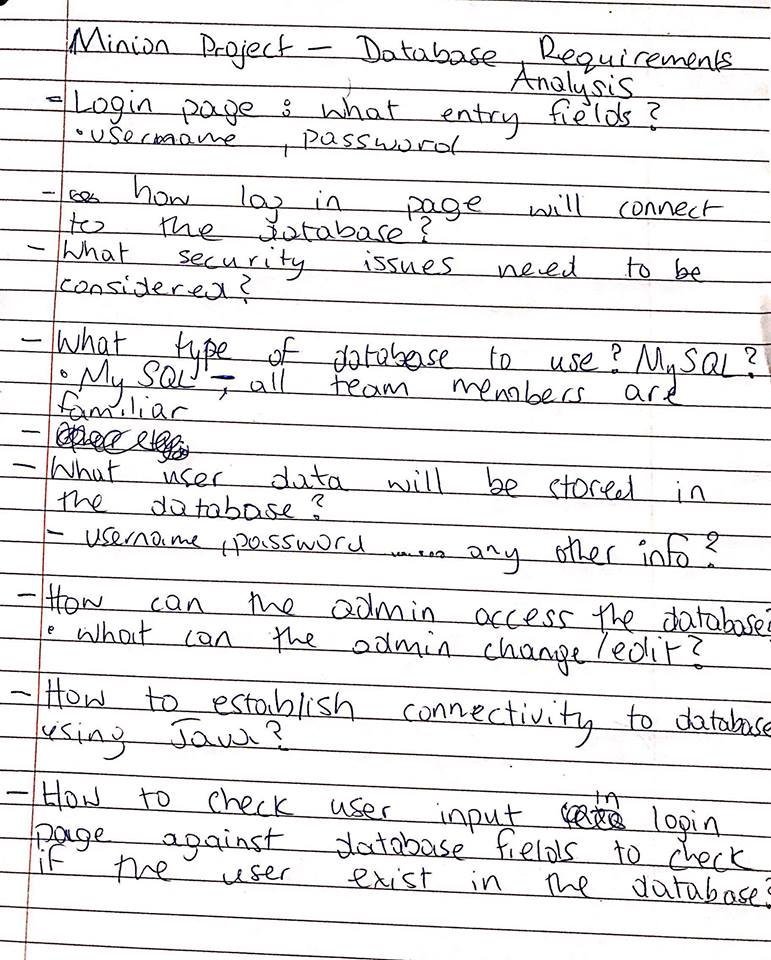 Minion Project - Database Requirements
Analysis
- Login page : what entry fields?
• username , password
- how log in page will connect
to the database?
- What security issues need to be
considered?
- What type of database to use? MySQL?
• My SQL - , all team members are
familiar
-
- What user data will be stored in
the database?
- username , password ....... any other info?
- How can the admin access the database?
• what can the admin change/edit?
- How to establish connectivity to database
using Java?
- How to check user input in login
page against database fields to check
if the user exist in the database?